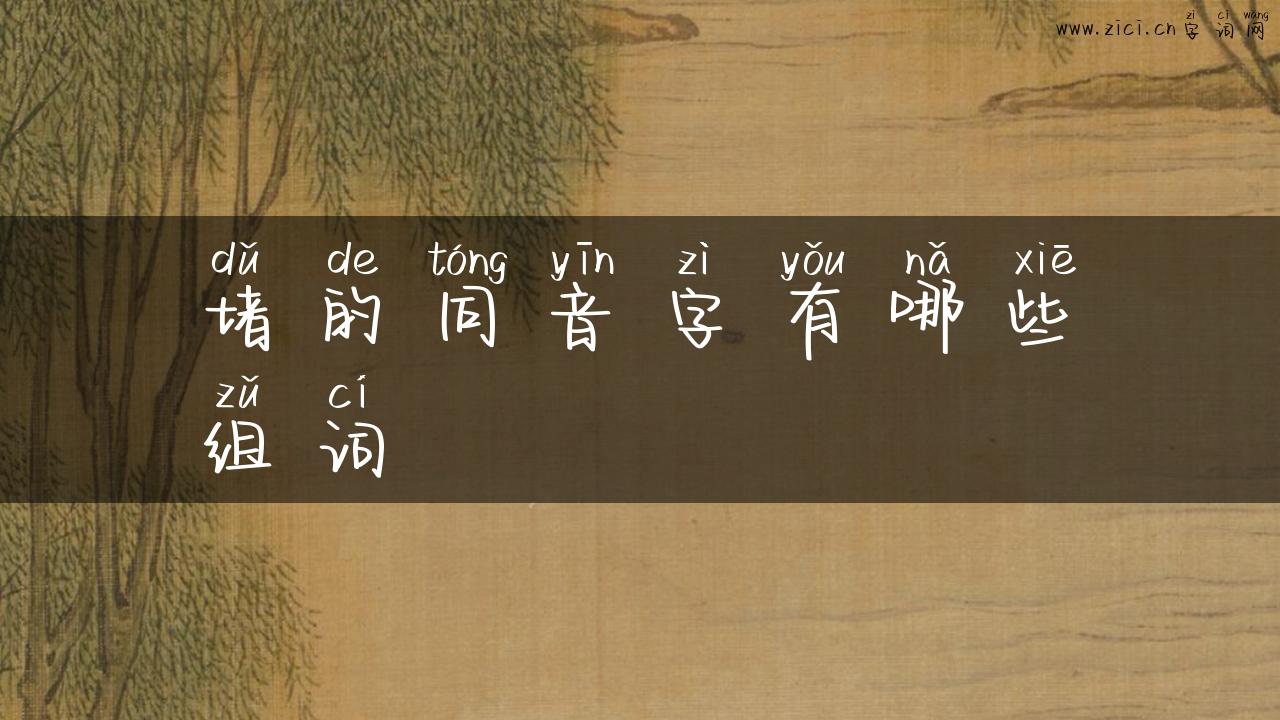 zì cí wǎng
www.zici.cn 字词网
dǔ de tóng yīn zì yǒu nǎ xiē
堵的同音字有哪些
zǔ cí
组词